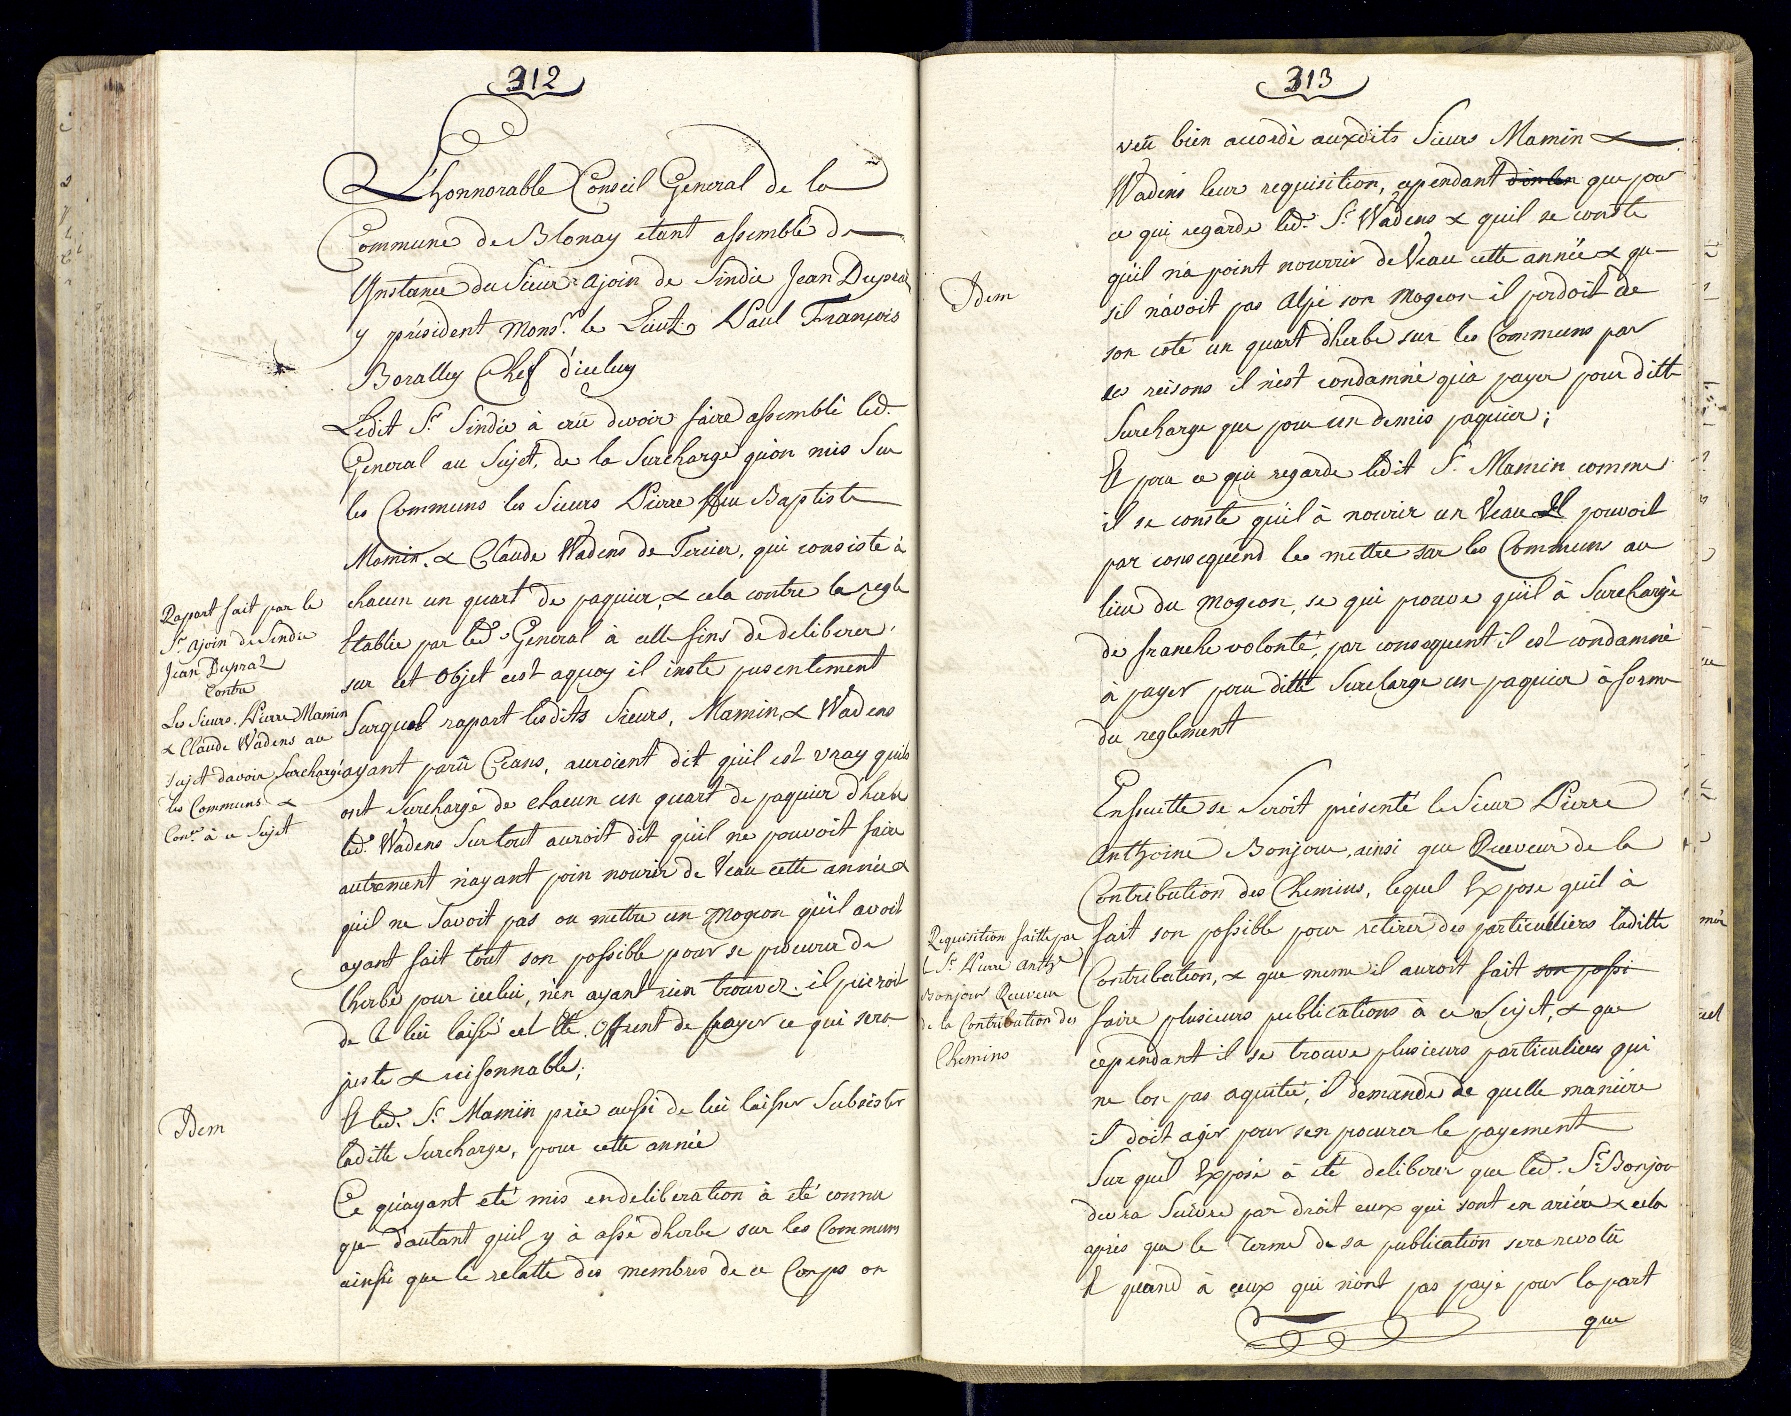 312
L'honnorable Conseil General de la
Commune de Blonay etant assemblé de
Instance du Sieur ajoin de Sindic Jean Dupraz
y président Monsr. le Lieut. Paul François
Boralley Chef d'iceluy
Ledit Sr. Sindic à crû devoir faire assemblé led.
General au Sujet, de la Surcharge qu'on mis Sur
les Communs les Sieurs Pierre feu Baptiste
Mamin. & Claude Wadens de Tercier, qui consiste à
chacun un quart de paquier, & cela contre la regle
Etablie par led. General à celle fins de deliberer
sur cet Objet cest aquoy il inste pusentement
Surquel rapart lesdits Sieurs, Mamin, & Wadens
ayant parû Ceans, auroient dit qu'il est vray quils
ont Surchargé de chacun un quart de paquier d'herbe
led. Wadens Surtout auroit dit qu'il ne pouvoit faire
autrement n'ayant poin nourir de Veau cette année &
qu'il ne Savoit pas ou mettre un mogeon qu'il avoit
ayant fait tout son possible pour se procurer de
lherbe pour icelui, n'en ayant rien trouvez. il prieroit
de le lui laissé cet Eté. Offrent de payer ce qui sera
juste & reisonnable;
Et led. Sr. Mamin prie aussi de lui laisser Subsister
laditte Surcharge, pour cette année
Ce qu'ayant eté mis en deliberation à eté connu
que d'autant quil y à assé dherbe sur les Communs
ainsi que le relatte des membres de ce Corps on
Rapart fait par le
Sr. ajoin de Sindic
Jean Dupraz
Contre
Les Sieurs. Pierre Mamin
& Claude Wadens au
Sujet davoir Surchargé
les Communs &
Conr. à ce Sujet
Idem
313
veu bien accordé auxdits Sieurs Mamin &
Wadens leur requisition, cependant que pour
ce qui regarde led. Sr. Wadens & quil se conste
qu'il n'a point nourrir de Veau cette année & que
sil n'avoit pas Alpé son Mogeon il perdoit de
son coté un quart d'herbe sur les Communs par
ces reisons il n'est condamné qu'a payer pour ditte
Surcharge que pour un demis paquier;
Et pour ce qui regarde ledit Sr. Mamin comme
il se conste qu'il à nourir un Veau Il pouvoit
par consequend les mettre sur les Communs au
lieu du mogeon, se qui prouve qu'il à Surchargé
de franche volonté, par consequent il est condamné
à payer pour ditte Surcharge un paquier à forme
du reglement
Idem
Ensuitte se Seroit présenté le Sieur Pierre
Anthoine Bonjour, ainsi que Receveur de la
Contribution des Chemins, lequel Expose quil à
fait son possible pour retirer des particulliers laditte
Contribution, & que meme il auroit fait son possi
faire plusieurs publications à ce Sujet, & que
cependant il se trouve plusieurs particuliers qui
ne lon pas aquitée, il demande de quelle maniére
il doit agir pour sen procurer le payement
Sur quel Exposé à été deliberer que led. Sr. Bonjour
devra Suivre par droit ceux qui sont en ariére & cela
après que le Terme de sa publication sera revolû
Et quand à ceux qui n'ont pas payé pour la part
que
Requisition faitte par
le Sr. Pierre anthe
Bonjour Receveur
de la Contribution des
Chemins